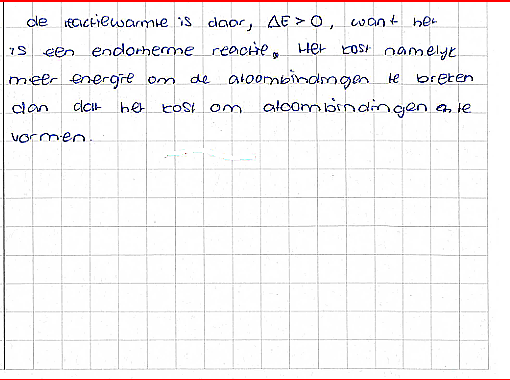 de reactiewarmte is daar, ΔE > 0, want het
is een endotherme reactie. Het kost namelijk
meer energie om de atoombindingen te breken
dan dat het kost om atoombindingen te
vormen.